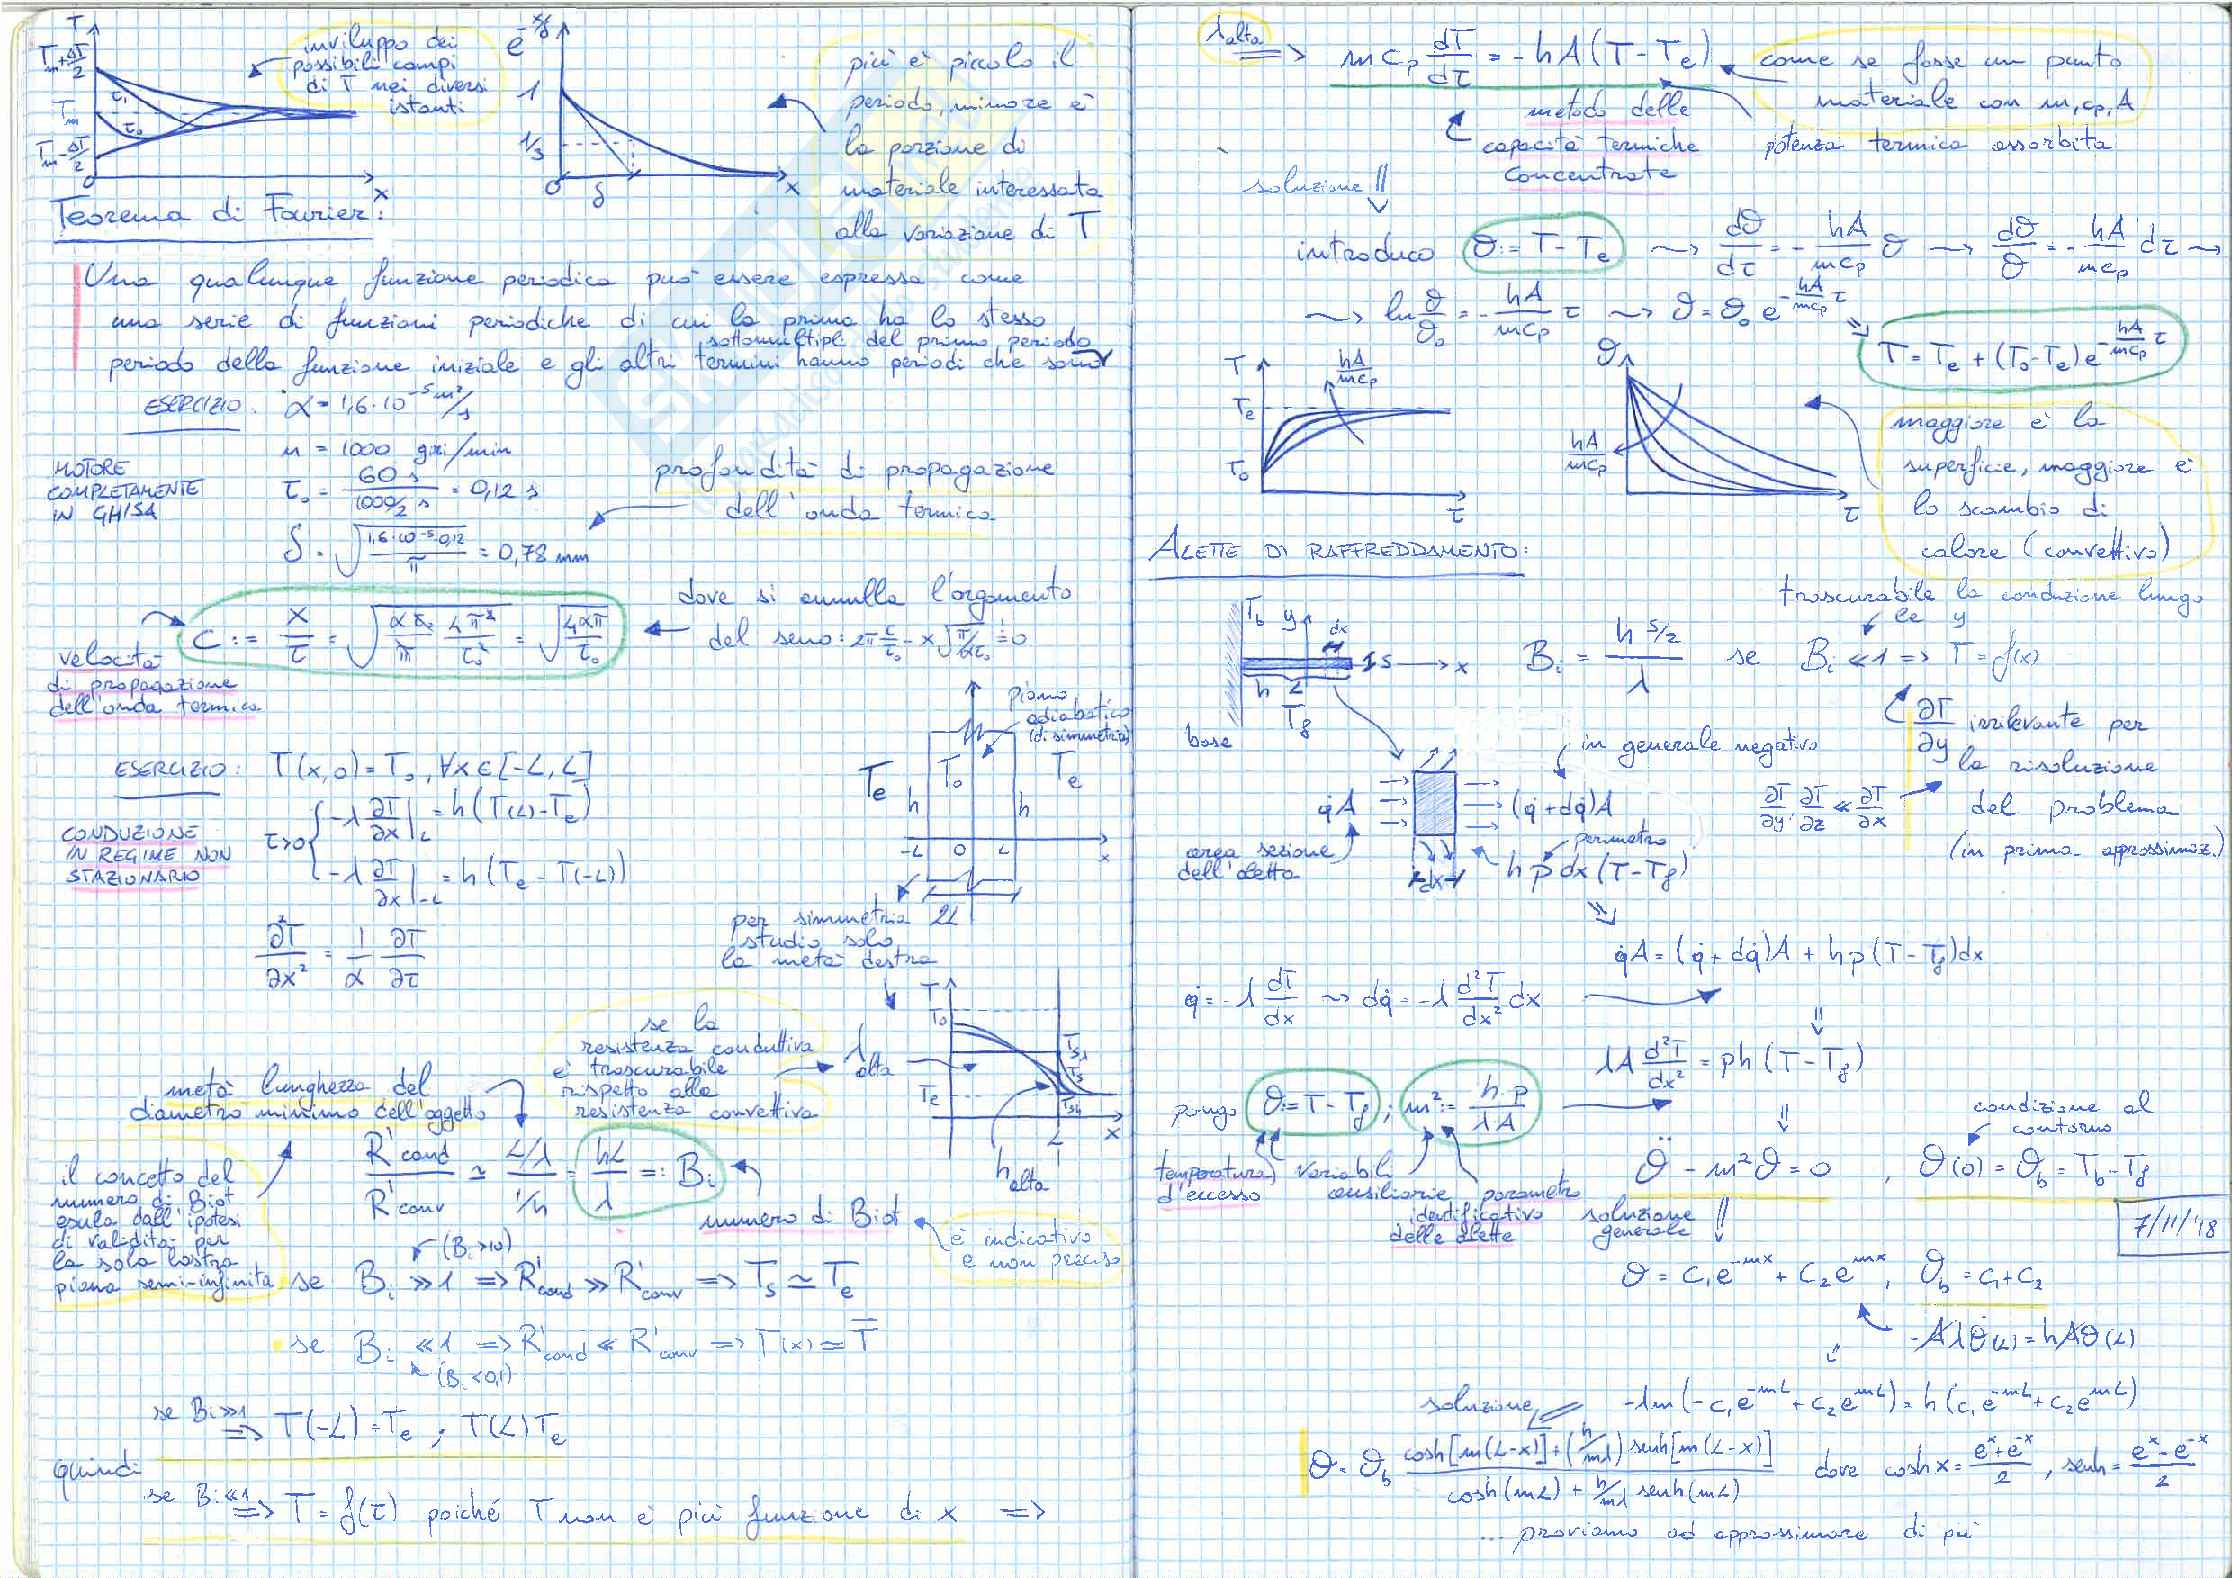 T
T_m+ΔT/2
T_m
T_m-ΔT/2
τ₁
τ₀
0
x
inviluppo dei
possibili campi
di T nei diversi
istanti
e^-x/δ
1
1/3
0
δ
x
più è piccolo il
periodo, minore è
la porzione di
materiale interessata
alla variazione di T
Teorema di Fourier:
Una qualunque funzione periodica può essere espressa come
una serie di funzioni periodiche di cui la prima ha lo stesso
periodo della funzione iniziale e gli altri termini hanno periodi che sono
sottomultipli del primo periodo
ESERCIZIO: α = 1,6·10⁻⁵ m²/s
n = 1000 giri/min
MOTORE
COMPLETAMENTE
IN GHISA
τ₀ = 60 s / (1000/2 s) = 0,12 s
δ = √(1,6·10⁻⁵·0,12 / π) = 0,78 mm
profondità di propagazione
dell'onda termica
C := x/τ = √(ατ₀/π · 4π²/τ₀²) = √(4απ/τ₀)
dove si annulla l'argomento
del seno: 2π τ/τ₀ - x√(π/ατ₀) = 0
velocità
di propagazione
dell'onda termica
piano
adiabatico
(di simmetria)
ESERCIZIO: T(x,0) = T₀, ∀x∈[-L, L]
CONDUZIONE
IN REGIME NON
STAZIONARIO
τ>0 { -λ ∂T/∂x|_L = h(T(L)-T_e)
-λ ∂T/∂x|_-L = h(T_e - T(-L))
T_e
T₀
T_e
h
h
-L 0 L x
2L
∂²T/∂x² = 1/α ∂T/∂τ
per simmetria
studio solo
la metà destra
T
T₀
T_e
T_sλ
T_s
T_sh
L
x
λ alta
h alta
se la
resistenza conduttiva
è trascurabile
rispetto alla
resistenza convettiva
metà lunghezza del
diametro minimo dell'oggetto
R'cond / R'conv ≃ (L/λ)/(1/h) = hL/λ =: Bi
numero di Biot
è indicativo
e non preciso
il concetto del
numero di Biot
esula dall'ipotesi
di validità per
la sola lastra
piana semi-infinita
(Bi>10)
se Bi ≫ 1 => R'cond ≫ R'conv => T_s ≃ T_e
se Bi ≪ 1 => R'cond ≪ R'conv => T(x) ≃ T̄
(Bi<0,1)
se Bi≫1 => T(-L) = T_e ; T(L) T_e
quindi
se Bi≪1 => T = f(τ) poiché T non è più funzione di x =>
λ alta => m c_p dT/dτ = -hA(T-T_e)
come se fosse un punto
materiale con m, c_p, A
metodo delle
capacità termiche
concentrate
potenza termica assorbita
soluzione
introduco ϑ := T-T_e ⤳ dϑ/dτ = - hA/mc_p ϑ ⤳ dϑ/ϑ = - hA/mc_p dτ ⤳
⤳ ln ϑ/ϑ₀ = - hA/mc_p τ ⤳ ϑ = ϑ₀ e^(-hA/mc_p τ)
T = T_e + (T₀-T_e) e^(-hA/mc_p τ)
T
T_e
T₀
hA/mc_p
τ
ϑ
hA/mc_p
τ
maggiore è la
superficie, maggiore è
lo scambio di
calore (convettivo)
ALETTE DI RAFFREDDAMENTO:
T_b
y
dx
s
x
h
L
T_f
base
trascurabile la conduzione lungo
le y
Bi = h s/2 / λ se Bi ≪ 1 => T = f(x)
∂T/∂y irrilevante per
la risoluzione
del problema
(in prima approssimaz.)
∂T/∂y, ∂T/∂z ≪ ∂T/∂x
in generale negativo
q̇A
(q̇+dq̇)A
perimetro
area sezione
dell'aletta
dx
h p dx (T-T_f)
q̇A = (q̇+dq̇)A + hp(T-T_f)dx
q̇ = -λ dT/dx ⤳ dq̇ = -λ d²T/dx² dx
λA d²T/dx² = ph(T-T_f)
pongo ϑ := T-T_f ; m² := h·p / λA
condizione al
contorno
ϑ̈ - m²ϑ = 0 , ϑ(0) = ϑ_b = T_b-T_f
temperatura
d'eccesso
variabili
ausiliarie
parametro
identificativo
delle alette
soluzione
generale
7/11/'18
ϑ = c₁e^-mx + c₂e^mx, ϑ_b = c₁+c₂
-Aλϑ̇(L) = hAϑ(L)
soluzione
-λm(-c₁e^-mL + c₂e^mL) = h(c₁e^-mL + c₂e^mL)
ϑ = ϑ_b (cosh[m(L-x)] + (h/mλ) senh[m(L-x)]) / (cosh(mL) + h/mλ senh(mL)) dove cosh x = (e^x+e^-x)/2, senh = (e^x-e^-x)/2
... proviamo ad approssimare di più